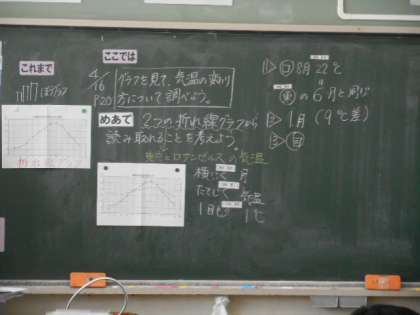 これまで
ぼうグラフ
折れ線グラフ
ここでは
4/16
P20
グラフを見て、気温の変わり
方について調べよう。
めあて
2つの折れ線グラフから
読み取れることを考えよう。
東京とロサンゼルスの気温
横じく 月
たてじく 気温
1目もり 1℃
8月 22℃
東の6月と同じ
② 1月 (9℃差)
③